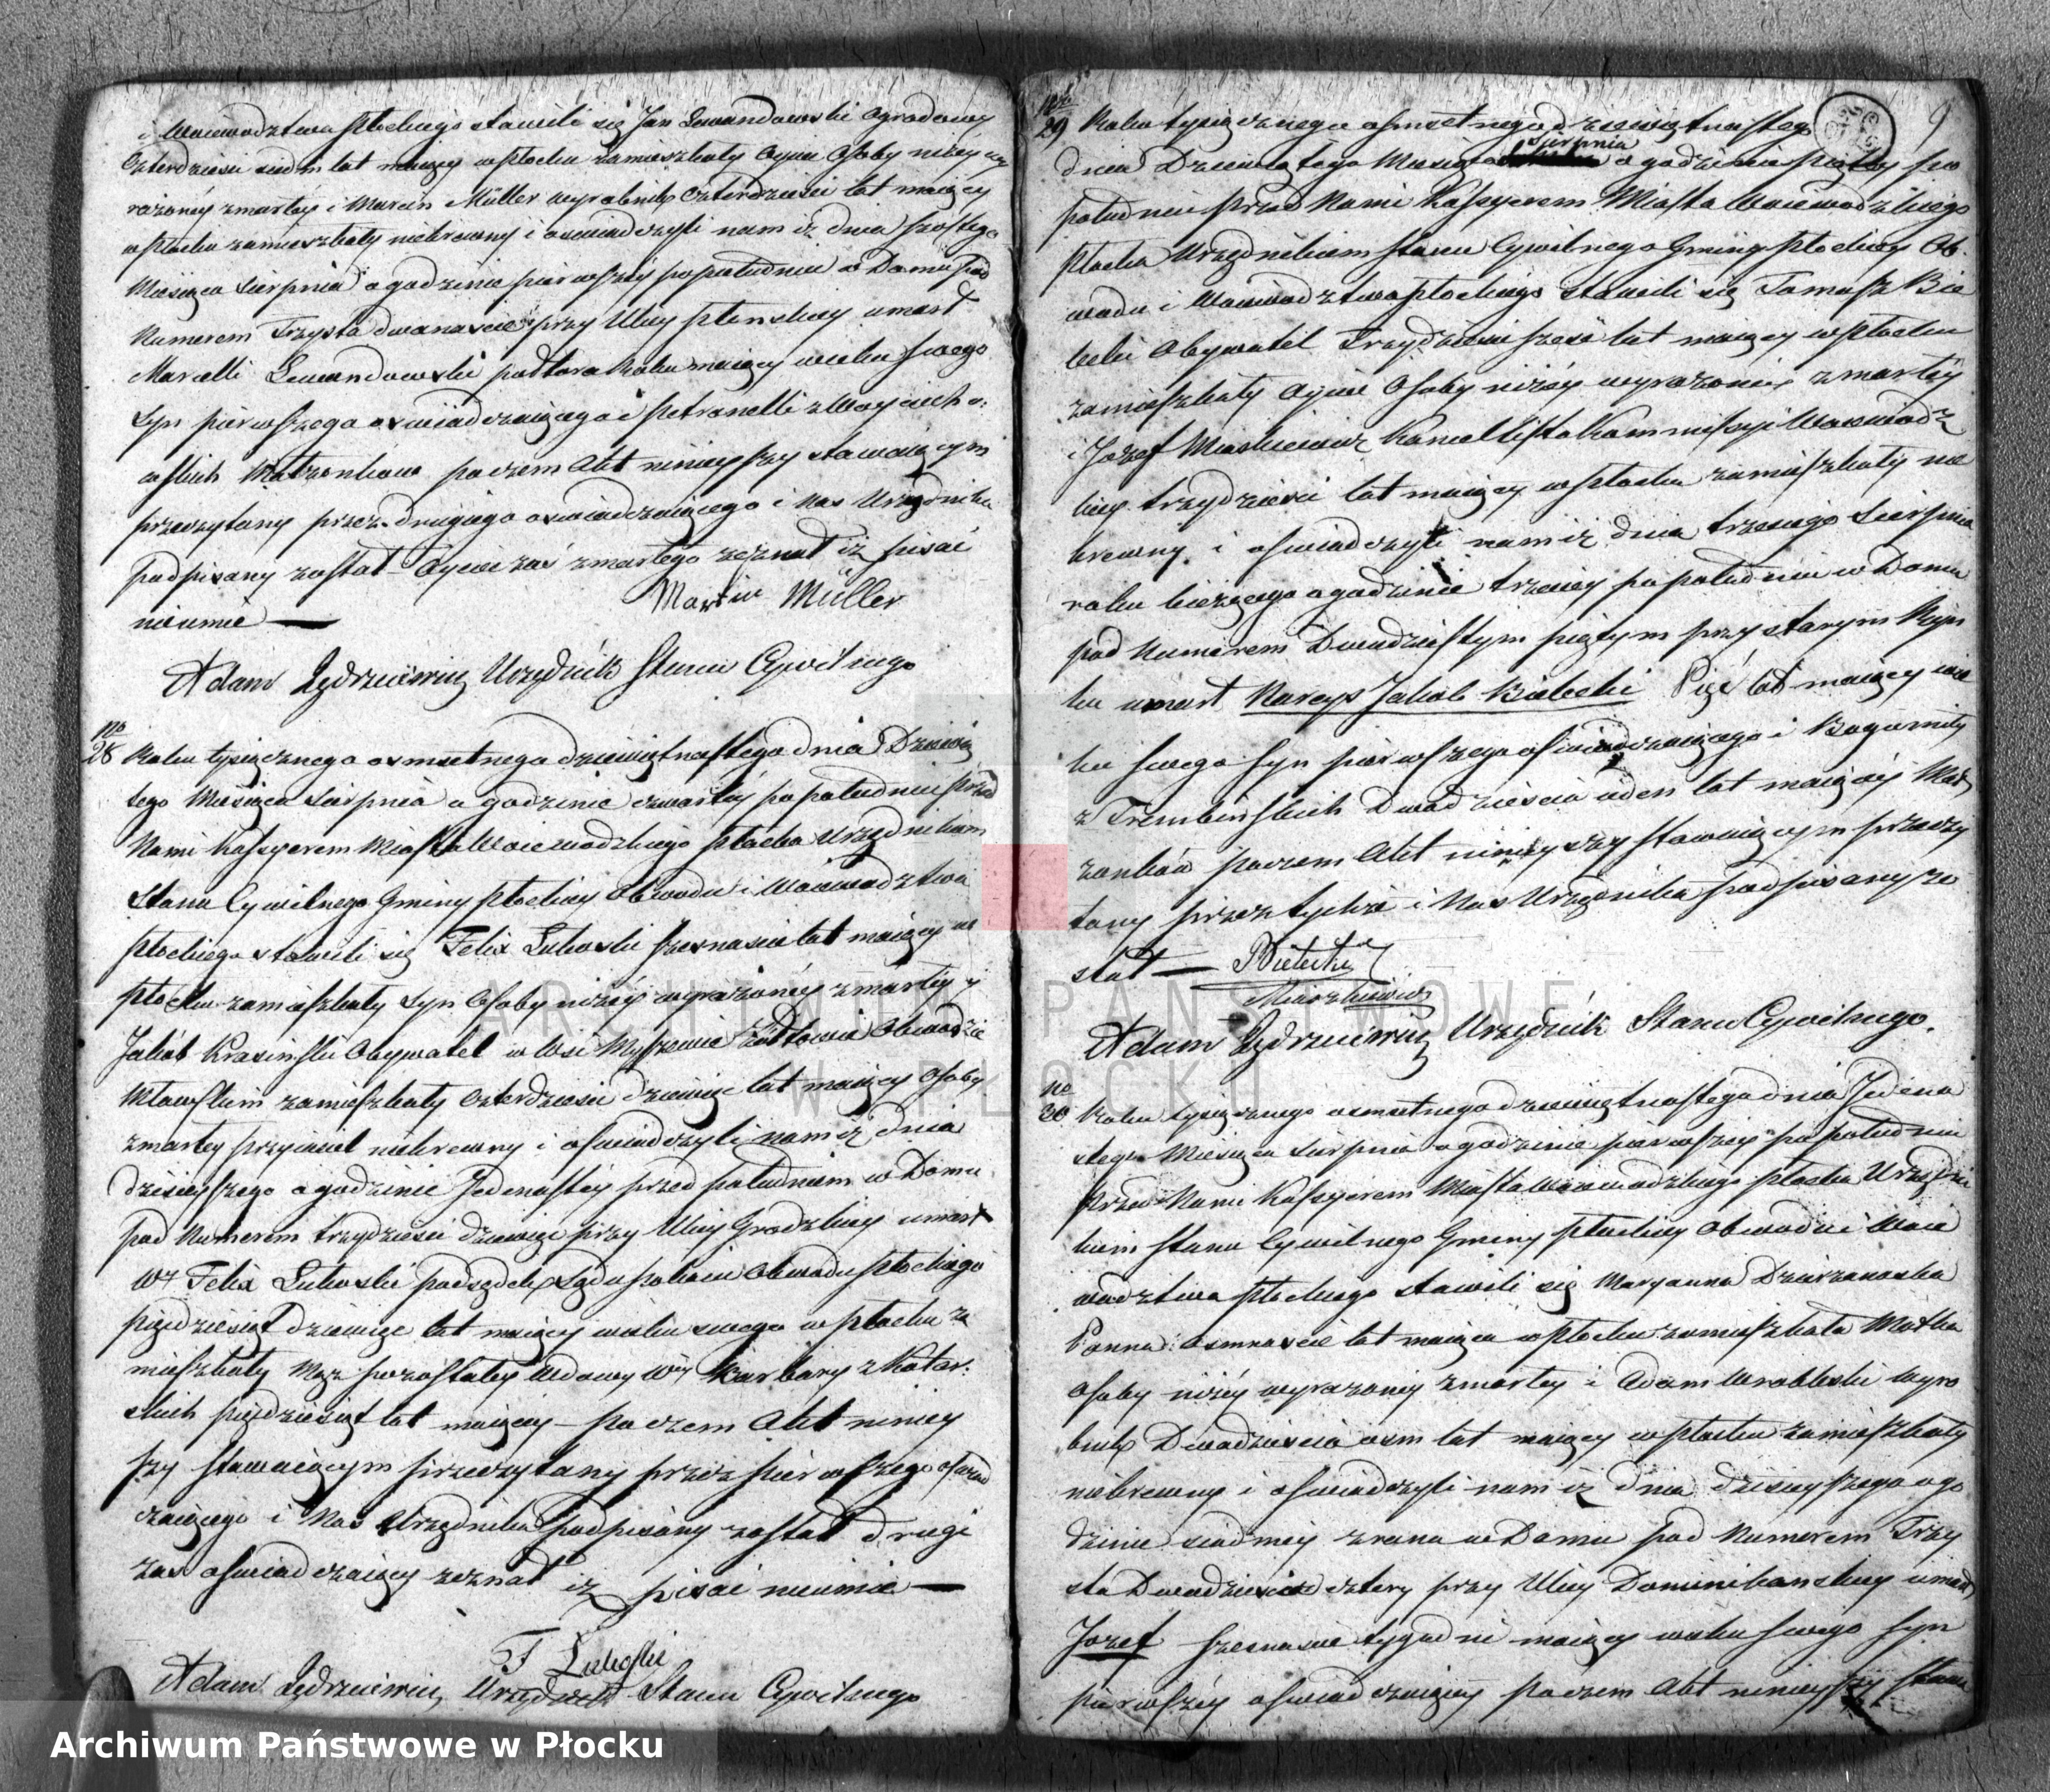 i Woiewodztwa Płockiego stawili się Jan Lewandowski Ogrodowy
Czterdzieści siedm lat maiący w Płocku zamieszkały Oyciec Osoby niżey wy
rażoney zmarłey i Marcin Müller wyrobnik Czterdzieści lat maiący
w Płocku zamieszkały niekrewny i oświadczyli nam iż dnia szóstego
Miesiąca Sierpnia o godzinie pierwszey popołudniu w Domu pod
Numerem Trzysta dwanaście przy Ulicy umarł
Marcelli Lewandowski półtora Roku maiący wieku swego
Syn pierwszego oświadczaiącego i Petronelli z Woyciecho:
wskich Małżonków poczem Akt ninieyszy stawaiącym
przeczytany przez drugiego oświadczaiącego i Nas Urzędnika
podpisany został Oyciec zaś zmarłego zeznał iż pisać
nieumie —
Martin Müller
Adam Jędrzeiewicz Urzędnik Stanu Cywilnego
No
28 Roku tysiącznego osmsetnego dziewiętnastego dnia Dziewią
tego Miesiąca Sierpnia o godzinie czwartey popołudniu przed
Nami Kassyerem Miasta Woiewodzkiego Płocka Urzędnikiem
Stanu Cywilnego Gminy Płockiey Obwodu i Woiewodztwa
Płockiego stawili się Felix Lutoski szesnascie lat maiący w
Płocku zamieszkały Syn Osoby niżey wyrażoney zmarłey y
Jakób Krasiński Obywatel w Wsi Obwodzie
Mławskim zamieszkały Czterdzieści dziewięć lat maiący Osoby
zmarłey przyiaciel niekrewny i oświadczyli nam iż dnia
dzisieyszego o godzinie Jedenastey przed południem w Domu
pod Numerem trzydzieści dziewięć przy Ulicy Grodzkiey umarł
Wy Felix Lutoski podsędek Sądu pokoiu Obwodu Płockiego
pięćdziesiąt dziewięć lat maiący wieku swego w Płocku za
mieszkały Mąż pozostałey Wdowy Wy Barbary z Kotar:
skich pięćdziesiąt lat maiącey – poczem Akt niniey
szy stawaiącym przeczytany przez pierwszego oświad
czaiącego i Nas Urzędnika podpisany został drugi
zaś oświadczaiący zeznał iż pisać nieumie —
F Lutoski
Adam Jędrzeiewicz Urzędnik Stanu Cywilnego
9
No
29 Roku tysiącznego osmsetnego dziewiętnastego
Sierpnia
dnia Dziewiątego Miesiąca o godzinie piątey po
południu przed Nami Kassyerem Miasta Woiewodzkiego
Płocka Urzędnikiem Stanu Cywilnego Gminy Płockiey Ob:
wodu i Woiewodztwa Płockiego stawili się Tomasz Bie
lecki Obywatel Trzydzieści sześć lat maiący w Płocku
zamieszkały Oyciec Osoby niżey wyrażoney zmarłey
i Jozef Miaskiewicz Kancellista Kommissyi Woiewodz
kiey trzydzieści lat maiący w Płocku zamieszkały nie
krewny i oświadczyli nam iż dnia trzeciego Sierpnia
roku bieżącego o godzinie trzeciey popołudniu w Domu
pod Numerem Dwudziestym piątym przy starym Ryn
ku umarł Narcyz Jakob Bielecki Pięć lat maiący wie
ku swego Syn pierwszego oświadczaiącego i Bogumiły
z Trembińskich Dwadzieścia ieden lat maiącey Mał
żonków poczem Akt ninieyszy stawaiącym przeczy
tany przez tychże i Nas Urzędnika podpisany zo
stał — Bielecki
Miaskiewicz
Adam Jędrzeiewicz Urzędnik Stanu Cywilnego.
No
30 Roku tysiącznego osmsetnego dziewiętnastego dnia Jedena
stego Miesiąca Sierpnia o godzinie pierwszey popołudniu
przed Nami Kassyerem Miasta Woiewodzkiego Płocka Urzędni
kiem Stanu Cywilnego Gminy Płockiey Obwodu i Woie
wodztwa Płockiego stawili się Maryanna Dzierzanoska
Panna osmnascie lat maiąca w Płocku zamieszkała Matka
Osoby niżey wyrażoney zmarłey i Adam Wroblewski wyro
bnik Dwadzieścia osm lat maiący w Płocku zamieszkały
niekrewny i oświadczyli nam iż dnia dzisieyszego o go
dzinie siodmey z rana w Domu pod Numerem Trzy
sta Dwadzieścia cztery przy Ulicy Dominikanskiey umarł
Jozef szesnascie tygodni maiący wieku swego syn
pierwszey oświadczaiącey poczem Akt ninieyszy stawa
ARCHIWUM PAŃSTWOWE
W PŁOCKU
Archiwum Państwowe w Płocku